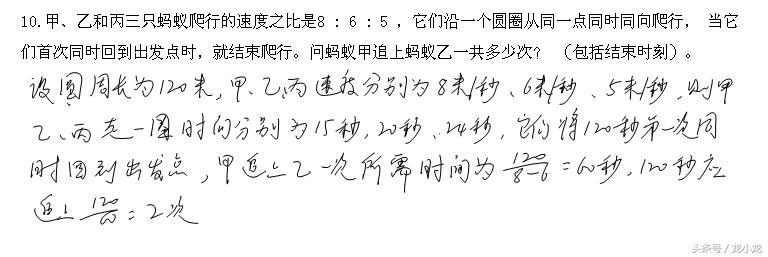 10.甲、乙和丙三只蚂蚁爬行的速度之比是8：6：5，它们沿一个圆圈从同一点同时同向爬行， 当它
们首次同时回到出发点时，就结束爬行。问蚂蚁甲追上蚂蚁乙一共多少次？ （包括结束时刻）。
设圆周长为120米，甲、乙、丙速度分别为8米/秒、6米/秒、5米/秒，则甲
乙、丙走一圈时间分别为15秒，20秒、24秒，它们将120秒第一次同
时回到出发点，甲追上乙一次所需时间为120/8-6=60秒，120秒应
追上120/60=2次
头条号／龙小龙